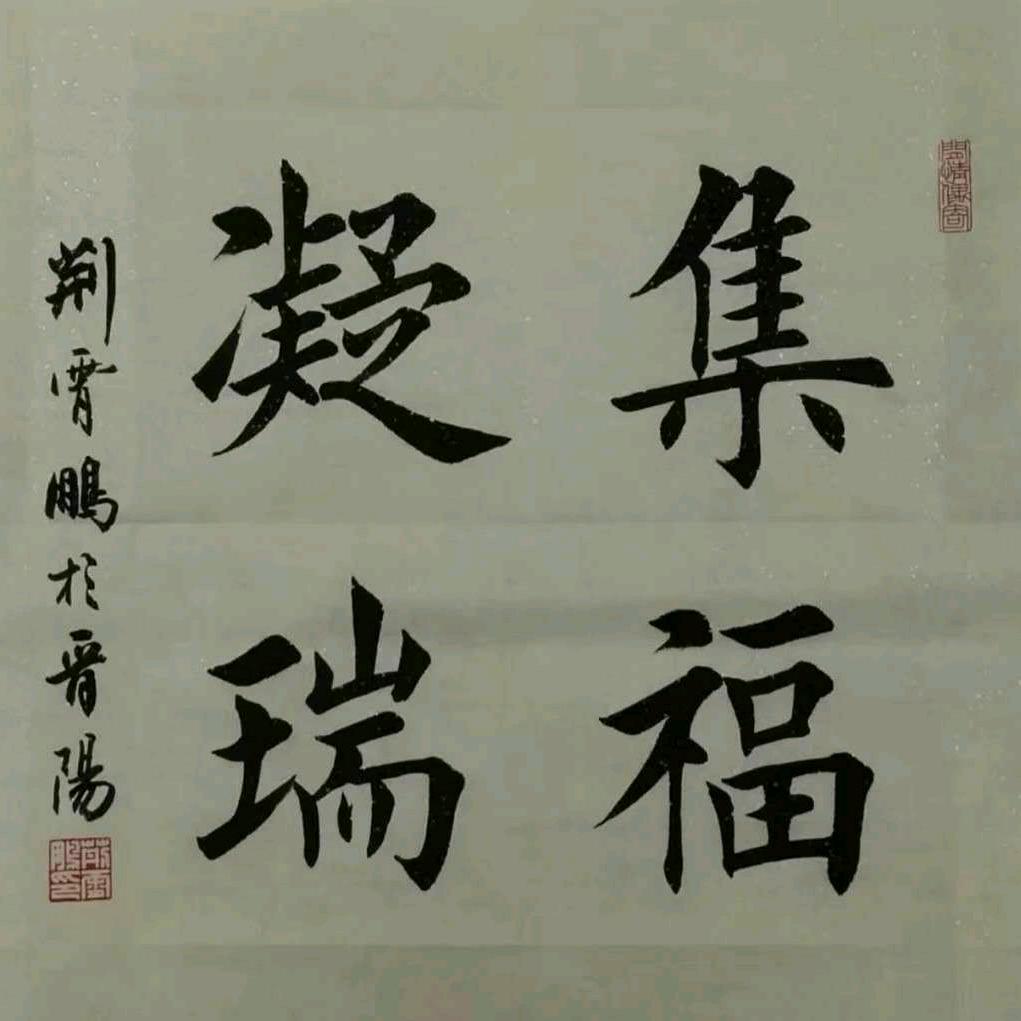 集福
凝瑞
荆霄鵬於晋陽